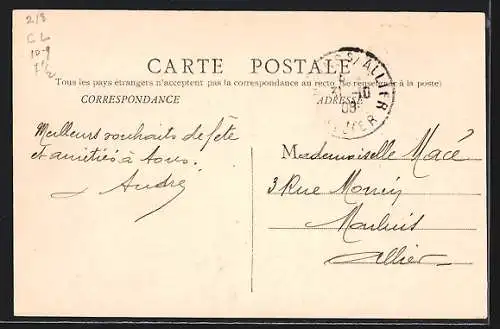 2/8
CL
10-9
CARTE POSTALE
Tous les pays étrangers n'acceptent pas la correspondance au recto (Se renseigner à la poste)
CORRESPONDANCE
ADRESSE
S/ ALLIER
31-10
08
ALLIER
Meilleurs souhaits de fête
et amitiés à tous.
André
Mademoiselle Macé
3 Rue
Moulins
Allier